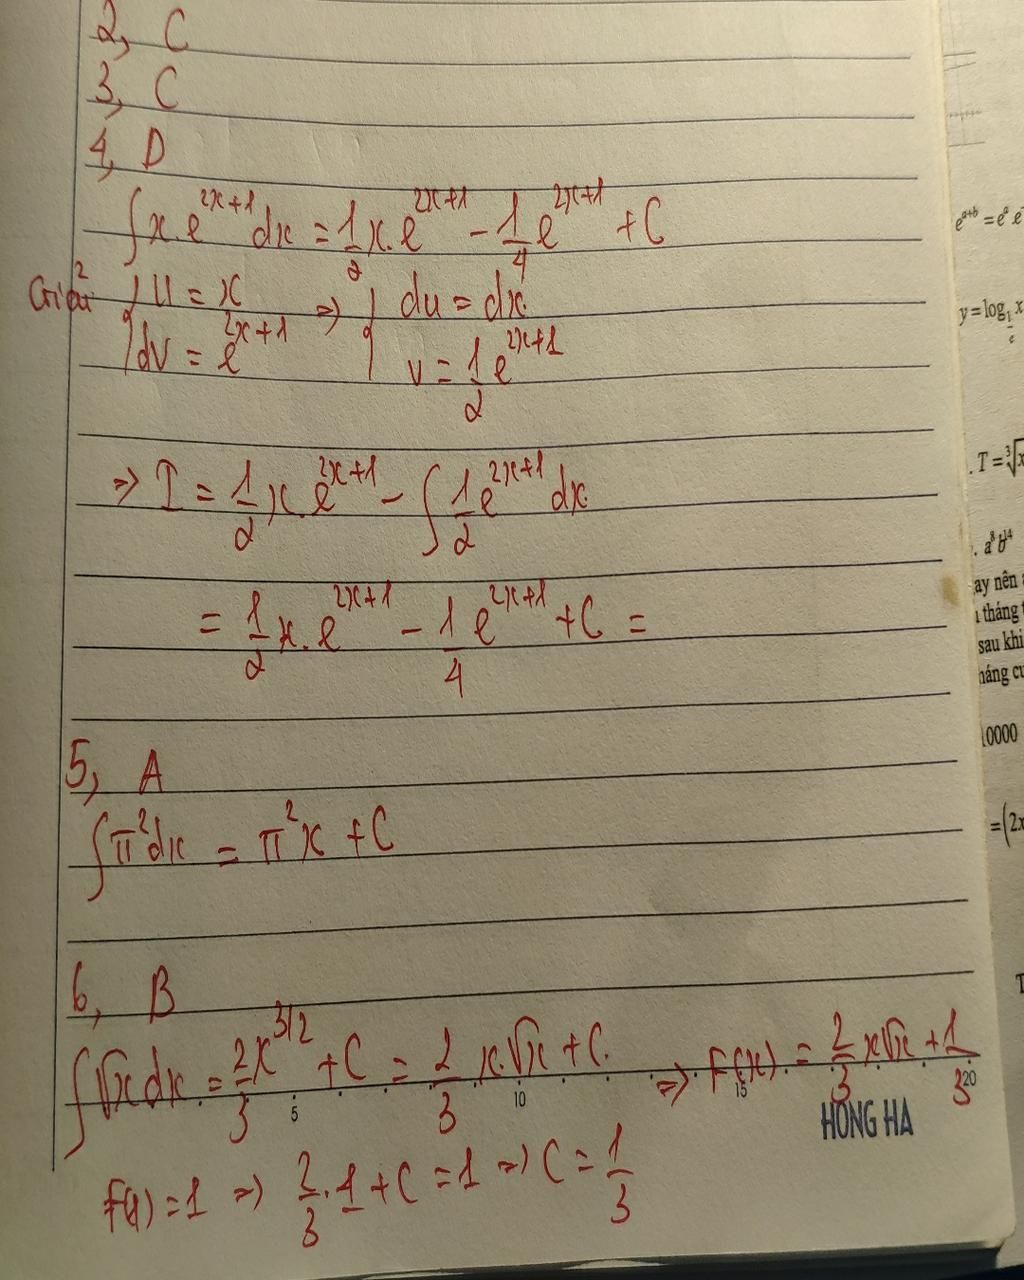 2, C
3, C
4, D
∫x.e^{2x+1}dx = \frac{1}{2}x.e^{2x+1} - \frac{1}{4}e^{2x+1} + C
{u = x ⇒ {du = dx
{dv = e^{2x+1} {v = \frac{1}{2}e^{2x+1}
⇒ I = \frac{1}{2}x.e^{2x+1} - ∫\frac{1}{2}e^{2x+1}dx
= \frac{1}{2}x.e^{2x+1} - \frac{1}{4}e^{2x+1} + C =
5, A
∫π²dx = π²x + C
6, B
∫√x dx = \frac{2}{3}x^{3/2} + C = \frac{2}{3}x.√x + C. ⇒ F(x) = \frac{2}{3}x√x + \frac{1}{3}
5 10 15 20
HONG HA
F(1) = 1 ⇒ \frac{2}{3}.1 + C = 1 ⇒ C = \frac{1}{3}
e^{a+b} = e^a.e
y = log_{\frac{1}{e}} x
. T = ∛x
. a⁸b¹⁴
ay nên
tháng
sau khi
háng
10000
= (2x
T